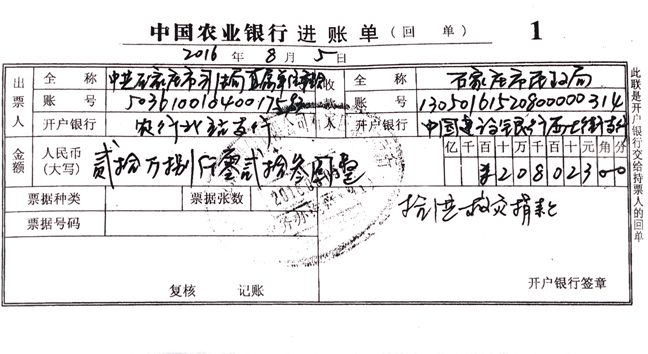 中国农业银行 进账单（回单） 1
2016年8月5日
出票人 全称 中共石家庄市司法局直属 收款人 全称 石家庄市民政局
账号 账号 13050161520800000314
开户银行 农行北站支行 开户银行 中国建设银行西大街支行
金额 人民币（大写） 贰拾万捌仟零贰拾叁圆整 亿千百十万千百十元角分
¥20802300
票据种类 票据张数 抗洪救灾捐款
票据号码
复核 记账 开户银行签章
此联是开户银行交给持票人的回单